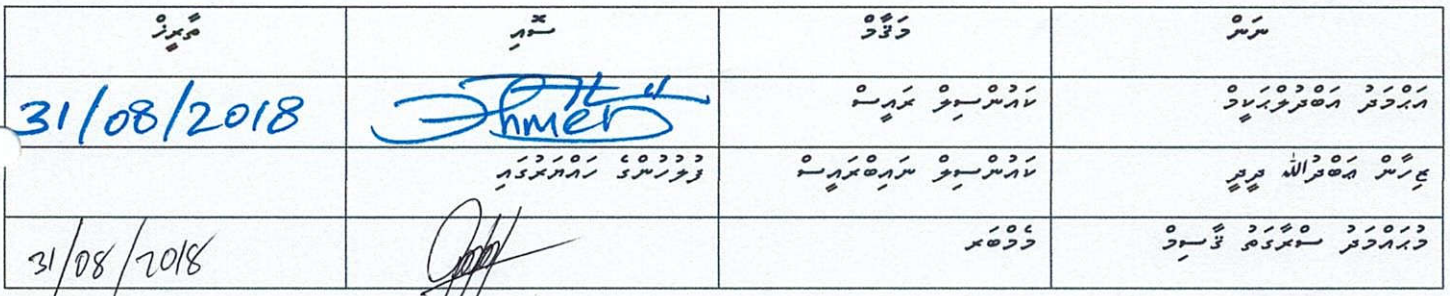 ނަން މަޤާމް ސޮއި ތާރީޚް
އަޙްމަދު އަބްދުލްޙަކީމް ކައުންސިލް ރައީސް 31/08/2018
ޒިހާން ޢަބްދުﷲ ދީދީ ކައުންސިލް ނައިބްރައީސް ފުލުހުންގެ ހައްޔަރުގައި
މުޙައްމަދު ސްރާގަތު ޤާސިމް މެމްބަރ 31/08/2018